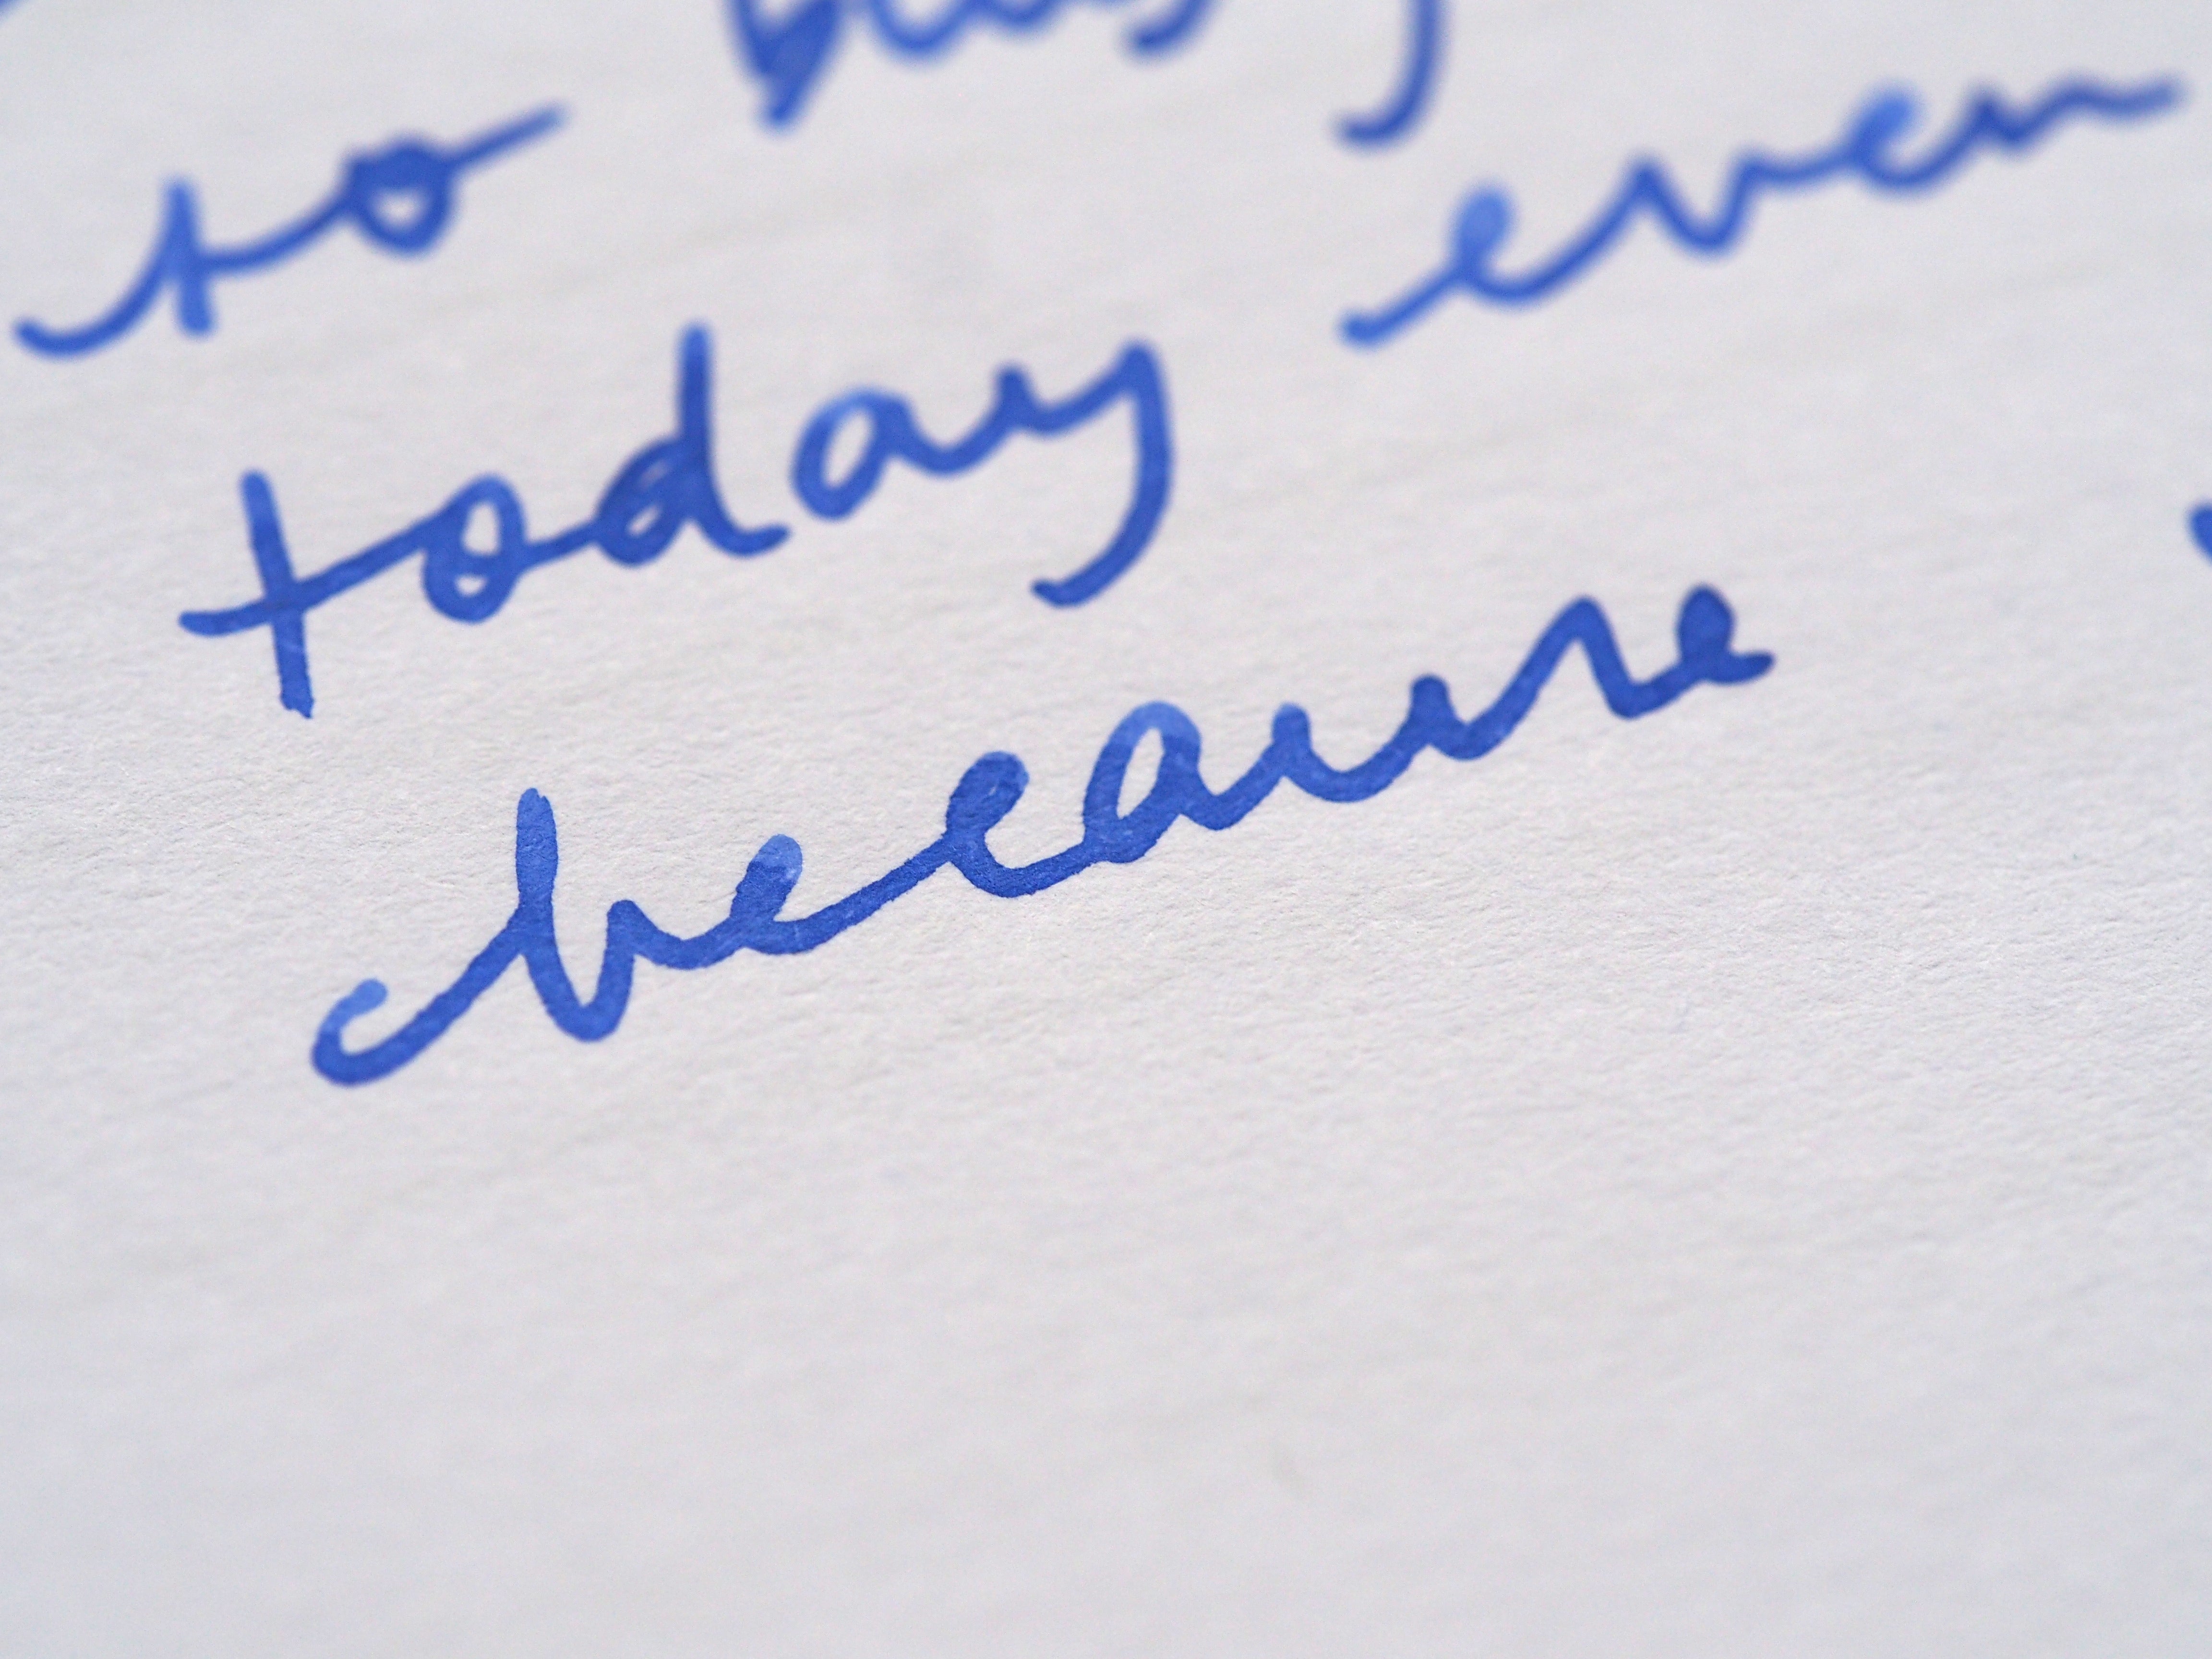 to busy
today even
because